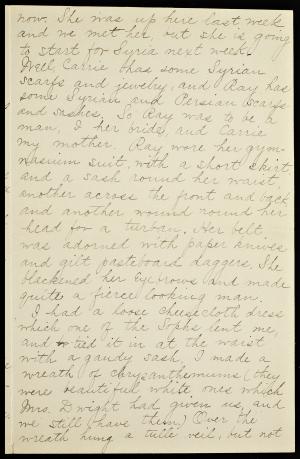 now. She was up here last week
and we met her, but she is going
to start for Syria next week.
Well Carrie has some Syrian
scarfs and jewelry, and Ray has
some Syrian and Persian scarfs
and sashes. So Ray was to be a
man, I her bride, and Carrie
my mother. Ray wore her gym-
nasium suit, with a short skirt,
and a sash round her waist,
another across the front and back
and another wound round her
head for a turban. Her belt
was adorned with paper knives
and gilt pasteboard daggers. She
blackened her eyebrows and made
quite a fierce looking man.
I had a loose cheesecloth dress
which one of the Sophs lent me,
and tied it in at the waist
with a gaudy sash, I made a
wreath of chrysanthemums (they
were beautiful white ones which
Mrs. Dwight had given us, and
we still have them.) Over the
wreath hung a tulle veil, but not